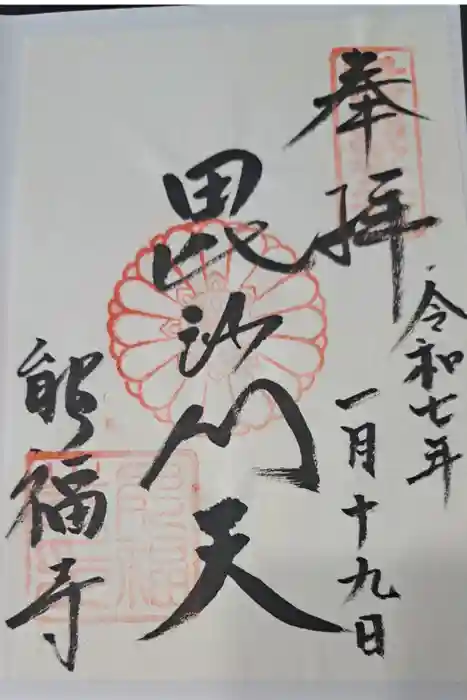 奉拝
令和七年
一月十九日
毘沙門天
能福寺